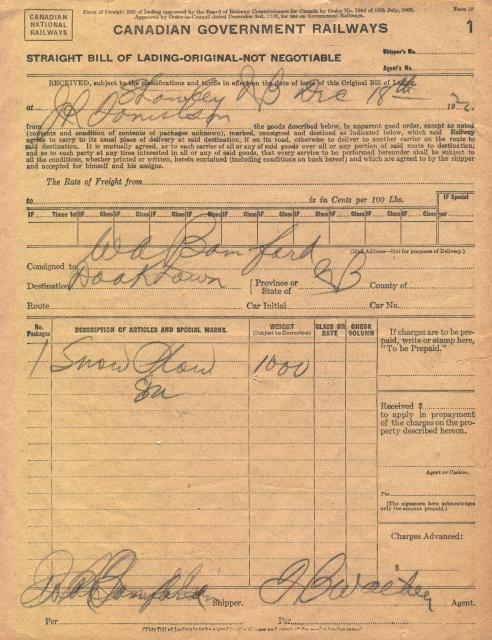 CANADIAN
NATIONAL
RAILWAYS
Form of Straight Bill of Lading approved by the Board of Railway Commissioners for Canada by Order No. 7562 of 15th July, 1909.
Approved by Order-in-Council dated December 3rd, 1909, for use on Government Railways.
CANADIAN GOVERNMENT RAILWAYS
1
STRAIGHT BILL OF LADING-ORIGINAL-NOT NEGOTIABLE
Shipper's No.
Agent's No.
RECEIVED, subject to the classifications and tariffs in effect on the date of issue of this Original Bill of Lading,
at Stanley NB Dec 18th 19
from
the goods described below, in apparent good order, except as noted
(contents and condition of contents of packages unknown), marked, consigned and destined as indicated below, which said Railway
agrees to carry to its usual place of delivery at said destination, if on its road, otherwise to deliver to another carrier on the route to
said destination. It is mutually agreed, as to each carrier of all or any of said goods over all or any portion of said route to destination,
and as to each party at any time interested in all or any of said goods, that every service to be performed hereunder shall be subject to
all the conditions, whether printed or written, herein contained (including conditions on back hereof) and which are agreed to by the shipper
and accepted for himself and his assigns.
The Rate of Freight from
to is in Cents per 100 Lbs.
IF Special
IF Times 1st IF Class IF Class IF Class IF Class IF Class IF Class IF Class IF Class per
Consigned to W A Bamford
(Mail Address—Not for purposes of Delivery.)
Destination Doaktown Province or State of NB County of
Route Car Initial Car No.
No. Packages DESCRIPTION OF ARTICLES AND SPECIAL MARKS. WEIGHT (Subject to Correction) CLASS OR RATE CHECK COLUMN
If charges are to be pre-
paid, write or stamp here,
"To be Prepaid."
1 Snow Plow 1000
Received $
to apply in prepayment
of the charges on the pro-
perty described hereon.
Agent or Cashier.
Per
(The signature here acknowledges
only the amount prepaid.)
Charges Advanced:
$
W A Bamford Shipper. Agent.
Per Per